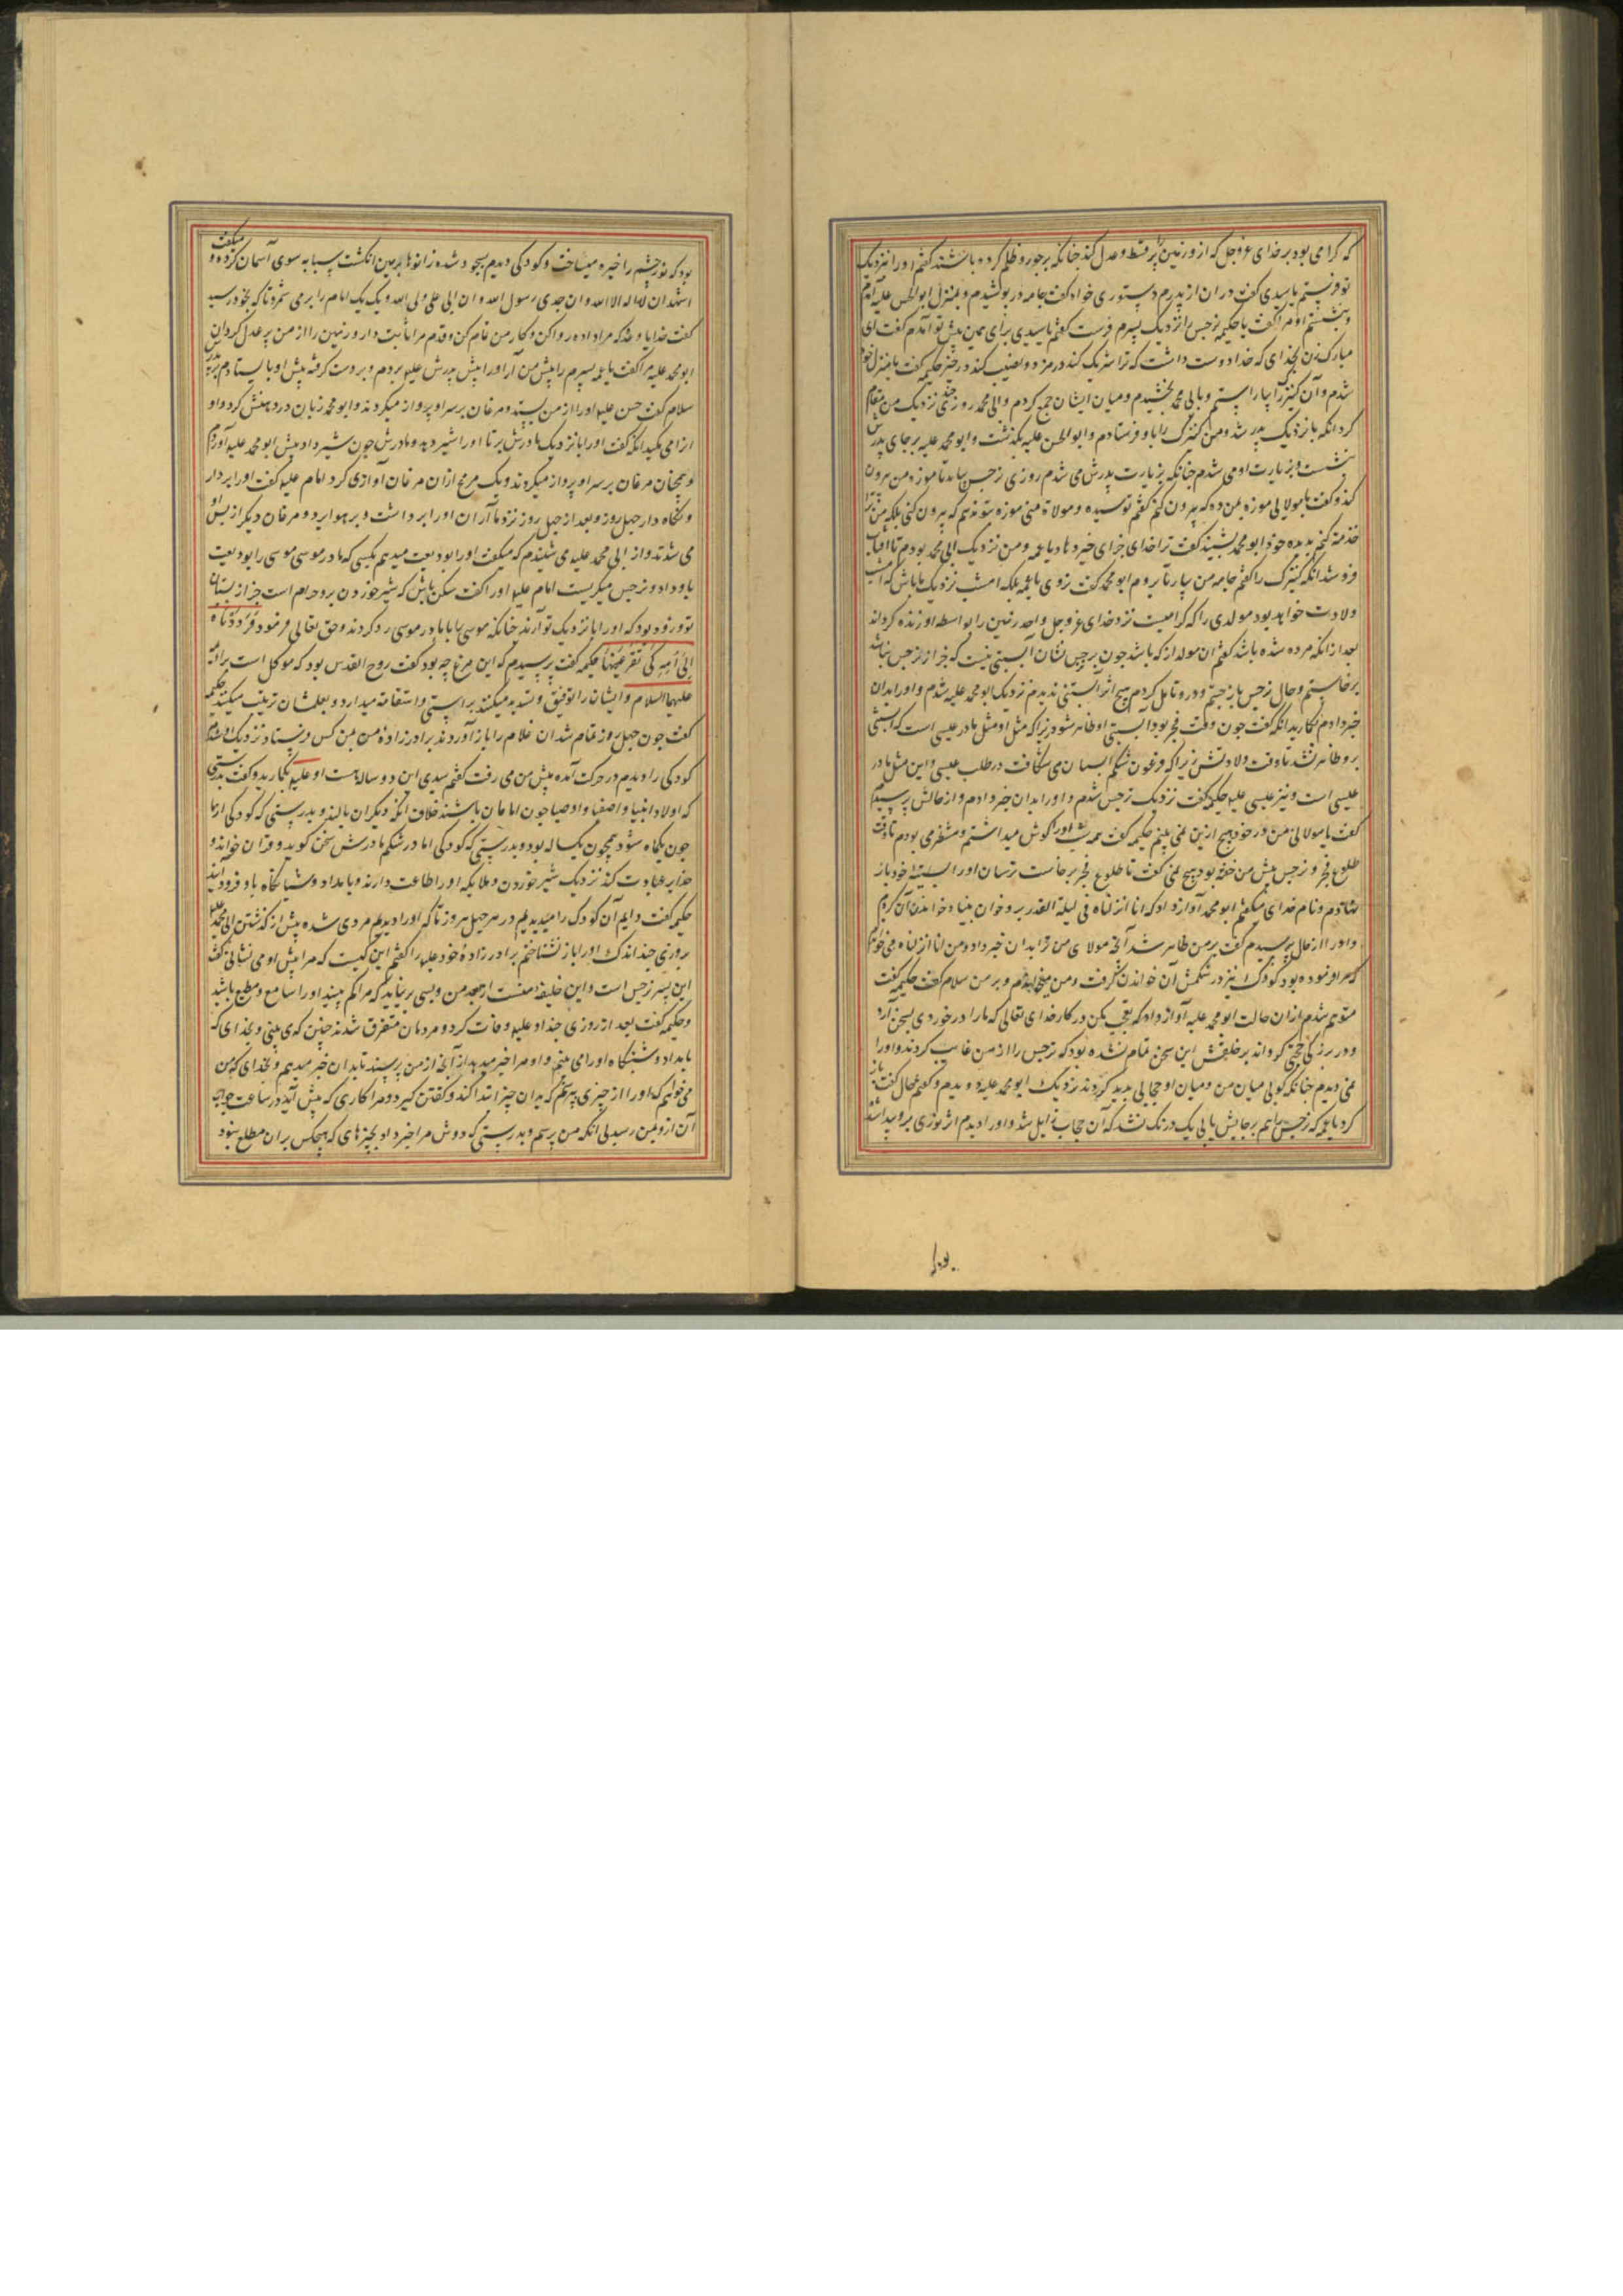 که کرامی بود بر خدای عزوجل که ازو زمین پر قسط و عدل کند چنانکه بر جور و ظلم کرده باشند گفتم او را نزدیک
تو فرستم یا سیدی گفت در ان از پدرم دستوری خواه گفت جامه در پوشیدم و بمنزل ابوالحسن علیه آمدم
و بنشستم او مرا گفت یا حکیمه نرجس را نزدیک پسرم فرست گفتم یا سیدی برای همین پیش تو آمدم گفت ای
مبارک زن بخدای که خدا دوست داشت که ترا شریک کند در مزد و نصیب کند در خیر حکیمه گفت بمنزل خود
شدم و آن کنیزک را بیاراستم و بابی محمد بخشیدم و میان ایشان جمع کردم و ابی محمد روزی چند نزدیک من مقام
کرد انکه باز نزدیک پدر شد و من کنیزک را باو فرستادم و ابوالحسن علیه بگذشت و ابو محمد علیه بر جای پدرش
بنشست و بزیارت او می شدم چنانکه بزیارت پدرش می شدم روزی نرجس بیامد تا موزه من بیرون
کند و گفت یا مولاتی موزه بمن ده که بیرون کنم گفتم تو سیده و مولاة منی موزه بتو ندهم که بیرون کنی بلکه من ترا
خدمة کنم بدیده خود ابو محمد بشنید گفت ترا خدای جزای خیر دهاد یا عمه و من نزدیک ابی محمد بودم تا افتاب
فرو شد انکه کنیزک را گفتم جامه من بیار تا بروم ابو محمد گفت نروی یا عمه بلکه امشب نزدیک ما باش که امشب
ولادت خواهد بود مولدی را که کرامیست نزد خدای عزوجل واحد زمین را بواسطه او زنده کرداند
بعد از انکه مرده شده باشد گفتم ان مولد از که باشد چون بر نرجس نشان آبستنی نیست که جز از نرجس نباشد
برخاستم و حال نرجس باز جستم و درو تامل کردم هیچ اثر آبستنی ندیدم نزدیک ابو محمد علیه شدم و او را بدان
خبر دادم بکار بد انکه گفت چون وقت فجر بود آبستنی او ظاهر شود زیرا که مثل او مثل مادر عیسی است که آبستنی
برو ظاهر نشد تا وقت ولادتش زیرا که فرعون شکم آبستنان می شکافت در طلب عیسی و این مثل مادر
عیسی است و نیز عیسی علیه حکیمه گفت نزدیک نرجس شدم و او را بدان خبر دادم و از حالش پرسیدم
گفت یا مولاتی من در خود هیچ ازین نمی بینم حکیمه گفت همه شب او را گوش میداشتم و منتظر می بودم تا وقت
طلوع فجر و نرجس پیش من خفته بود هیچ نمی گفت تا طلوع فجر برخاست ترسان او را بسینه خود باز
نهادم و نام خدای میگفتم ابو محمد آواز داد که انا انزلناه فی لیلة القدر برو خوان بنیاد خواندن آن کردم
و او را از حال پرسیدم گفت بر من ظاهر شد آنچه مولای من ترا بدان خبر داد و من انا انزلناه می خواندم
که مرا فرموده بود کودک نیز در شکمش آن خواندن گرفت و من میخواندم و بر من سلام گفت حکیمه گفت
متوهم شدم از ان حالت ابو محمد علیه آواز داد که تعجب مکن در کار خدای تعالی که ما را در خوردی بسخن آرد
و در بزرگی حجتی گرداند بر خلقش این سخن تمام نشده بود که نرجس را از من غایب کردند و او را
نمی دیدم چنانکه گویی میان من و میان او حجابی پدید کردند نزدیک ابو محمد علیه دویدم و گفتم حال گفت باز
گرد یا عمه که نرجس را هم بر جایش یابی یک درنگ نشد که آن حجاب زایل شد و او را دیدم اثر نوری برو پیدا شده
بود که نور چشم را خیره میساخت و کودکی دیدم بسجود شده زانوها بر زمین انگشت سبابه سوی آسمان کرده و میگفت
اشهد ان لا اله الا الله و ان جدی رسول الله و ان ابی علی ولی الله و یک یک امام را برمی شمرد تا که بخود رسید
گفت خدایا وعده که مرا داده روا کن و کار من تمام کن و قدم مرا ثابت دار و زمین را از من پر عدل گردان
ابو محمد علیه مرا گفت یا عمه پسرم را پیش من آر او را پیش پدرش علیه بردم و بر دست گرفته پیش او بایستادم بر پدرش
سلام گفت حسن علیه او را از من بستد و مرغان بر سر او پرواز میکردند و ابو محمد زبان در دهنش کرد و او
ازا می مکید انکه گفت او را با نزدیک مادرش بر تا او را شیر دهد و مادرش چون شیر داد پیش ابو محمد علیه آوردم
و همچنان مرغان بر سر او پرواز میکردند و یک مرغ از ان مرغان آوازی کرد امام علیه گفت او را بردار
و نگاه دار چهل روز و بعد از چهل روز نزد ما آر ان او را برداشت و بر هوا برد و مرغان دیگر از پس او
می شدند و از ابی محمد علیه می شنیدم که میگفت او را بودیعت میدهم بکسی که مادر موسی موسی را بودیعت
باو داد و نرجس میگریست امام علیه او را گفت ساکن باش که شیر خوردن برو حرام است جز از پستان
تو و زود بود که او را با نزدیک تو آرند چنانکه موسی را با مادر موسی رد کردند و حق تعالی فرمود فَرَدَدْنَاهُ
اِلىٰ اُمِّهِ كَىْ تَقَرَّ عَيْنُهَا حکیمه گفت پرسیدم که این مرغ چه بود گفت روح القدس بود که موکل است بر ائمه
علیهم السلام و ایشان را توفیق و تسدید میکند براستی و استقامة میدارد و بعلمشان تربیت میکند حکیمه
گفت چون چهل روز تمام شد ان غلام را باز آوردند برادر زاده من بمن کس فرستاد نزدیک او شدم
کودکی را دیدم در حرکت آمده پیش من می رفت گفتم سیدی این دو ساله است او علیه بکار بد و گفت بدرستی
که اولاد انبیا و اصفیا و اوصیا چون امامان باشند خلاف انکه دیگران بالند و بدرستی که کودکی از ما
چون یکماه شود همچون یک ساله بود و بدرستی که کودکی اما در شکم مادرش سخن گوید و قران خواند و
خدای عبادت کند نزدیک شیر خوردن و ملایکه او را طاعت دارند و بامداد و شبانگاه باو فرود آیند
حکیمه گفت دایم آن کودک را میدیدیم در هر چهل روز تا که او را دیدم مردی شده پیش از گذشتن ابی محمد علیه
بروزی چند اندک او را باز نشناختم برادر زاده خود علیه را گفتم این کیست که مرا پیش او می نشانی گفت
این پسر نرجس است و این خلیفه منست از بعد من و بسی برنیاید که مرا گم بینید او را سامع و مطیع باشید
و حکیمه گفت بعد از روزی چند او علیه وفات کرد و مردمان متفرق شدند چنین که می بینی و بخدای که
بامداد و شبنگاه او را می بینم و او مرا خبر میدهد از آنچه از من پرسید تا بدان خبر میدهم و بخدای که من
می خواهم که او را از چیزی پرسم که بدان چیز ابتدا کند و گفتن گیرد و مرا کاری که پیش آید در ساعت جواب
آن ازو بمن رسید بی انکه من پرسم و بدرستی که دوش مرا خبر داد بچیزهای که هیچکس بر ان مطلع نبود